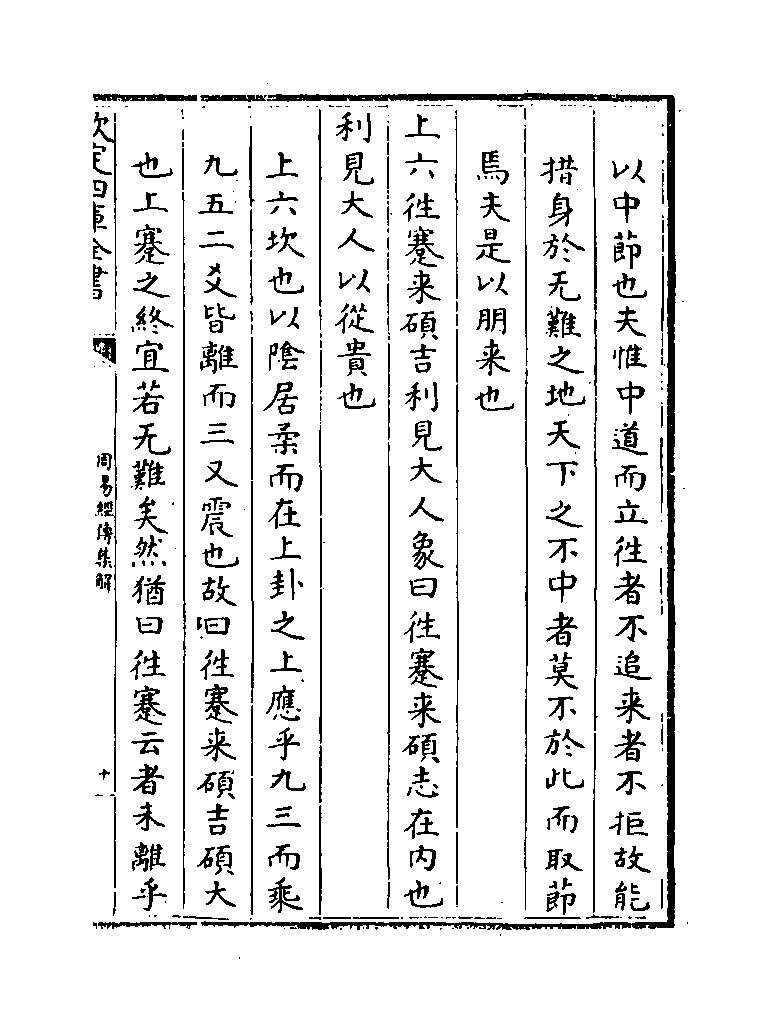 以中節也夫惟中道而立徃者不追来者不拒故能
措身於无難之地天下之不中者莫不於此而取節
焉夫是以朋来也
上六徃蹇来碩吉利見大人象曰徃蹇来碩志在内也
利見大人以從貴也
上六坎也以陰居柔而在上卦之上應乎九三而乘
九五二爻皆離而三又震也故曰徃蹇来碩吉碩大
也上蹇之終宜若无難矣然猶曰徃蹇云者未離乎
欽定四庫全書
周易經傳集解
十